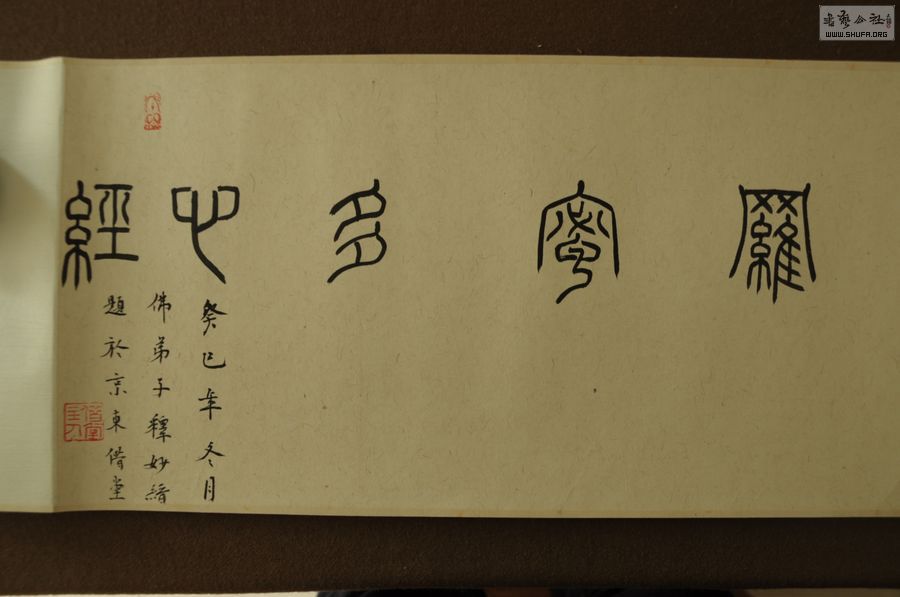 羅蜜多心經
癸巳年冬月
佛弟子釋妙縉
題於京東借堂
書藝公社
WWW.SHUFA.ORG